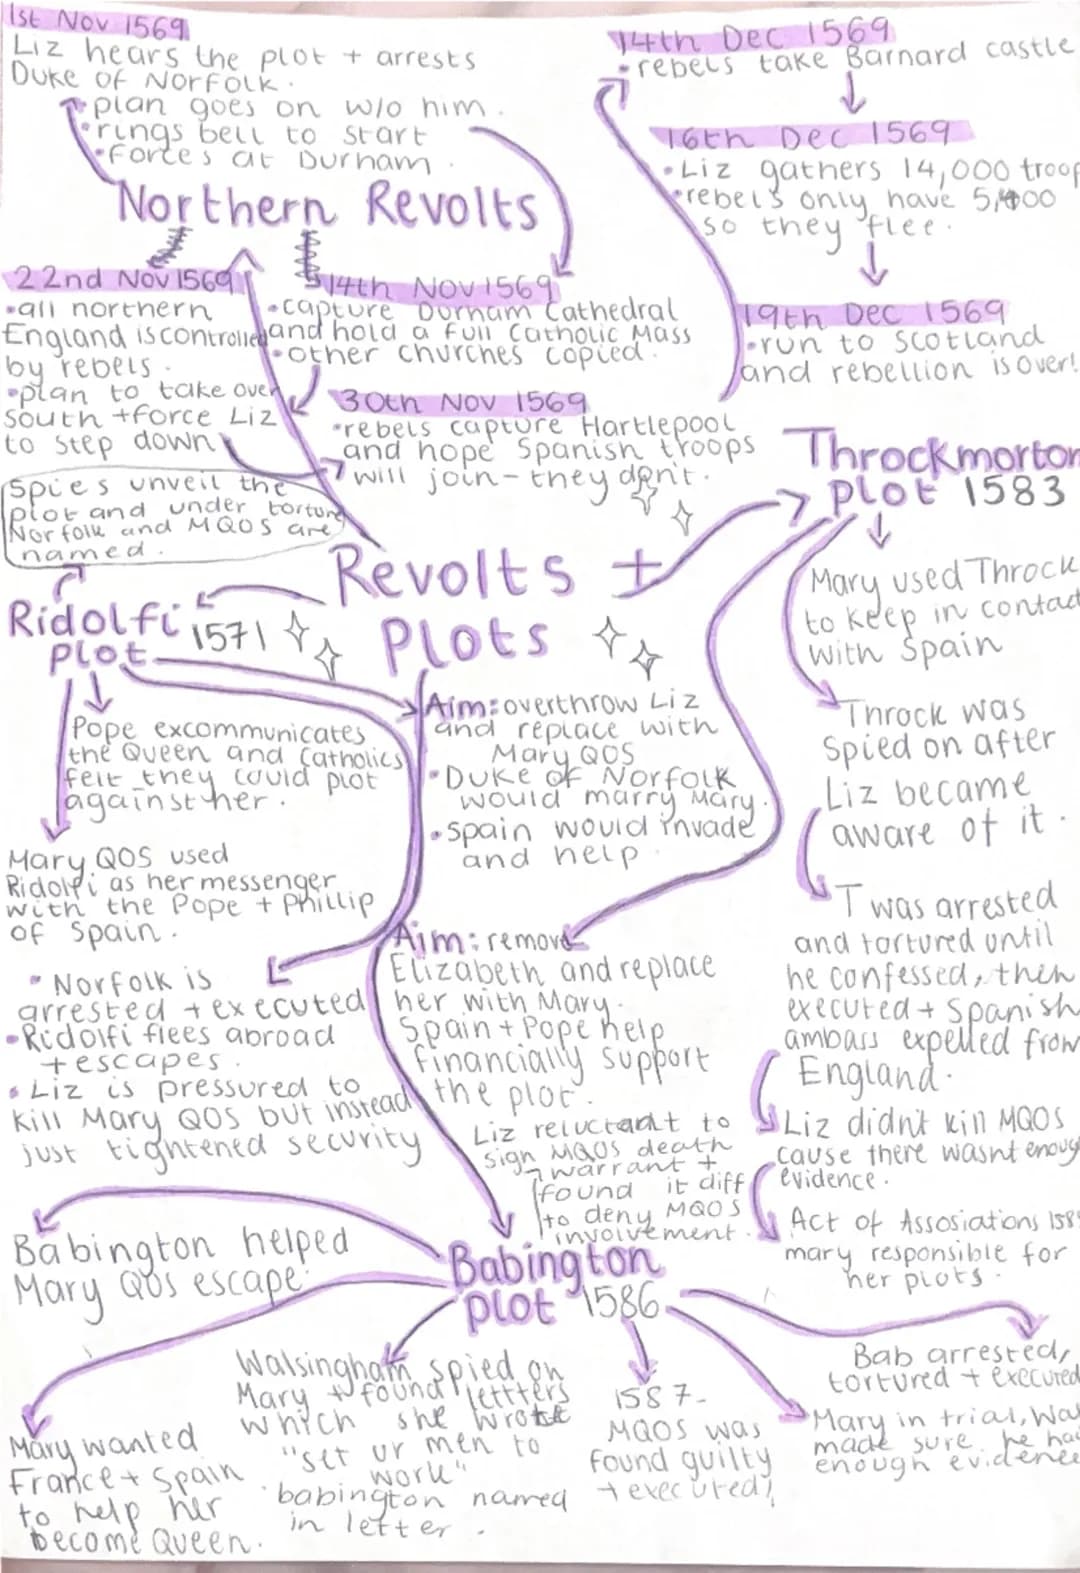 1st Nov 1569
Liz hears the plot + arrests
Duke of Norfolk.
• plan goes on w/o him.
• rings bell to start
• forces at Durham.
Northern Revolts
22nd Nov 1569
• all northern
England is controlled
by rebels.
• plan to take over
south + force Liz
to step down
14th Nov 1569
• capture Durham Cathedral
and hold a full Catholic Mass
• other churches copied.
30th Nov 1569
• rebels capture Hartlepool
and hope Spanish troops
will join - they don't.
14th Dec 1569
• rebels take Barnard castle
16th Dec 1569
• Liz gathers 14,000 troop
• rebels only have 5,400
so they flee.
19th Dec 1569
• run to Scotland
and rebellion is over!
Revolts +
Plots
Ridolfi
plot 1571
Spies unveil the
plot and under torture
Norfolk and MQOS are
named.
Pope excommunicates
the Queen and Catholics
felt they could plot
against her.
Mary QOS used
Ridolfi as her messenger
with the Pope + Phillip
of Spain.
• Norfolk is
arrested + executed
• Ridolfi flees abroad
+ escapes.
• Liz is pressured to
kill Mary QOS but instead
just tightened security
Aim: overthrow Liz
and replace with
Mary QOS
• Duke of Norfolk
would marry Mary.
• Spain would invade
and help.
Throckmorton
plot 1583
Mary used Throck
to keep in contact
with Spain
Throck was
spied on after
Liz became
aware of it.
T was arrested
and tortured until
he confessed, then
executed + Spanish
ambass expelled from
England.
Liz didn't kill MQOS
cause there wasnt enoug
evidence.
Act of Assosiations 158
mary responsible for
her plots.
Aim: remove
Elizabeth and replace
her with Mary.
Spain + Pope help
financially support
the plot.
Liz reluctant to
sign MQOS death
warrant +
found it diff
to deny MQOS
involvement.
Babington
plot 1586
Babington helped
Mary QOS escape.
Mary wanted
France + Spain
to help her
become Queen.
Walsingham spied on
Mary + found lettters
which she wrote
"set ur men to
work"
babington named
in letter.
1587-
MQOS was
found guilty
+ executed!
Bab arrested,
tortured + executed
Mary in trial, Wa
made sure he ha
enough evidence